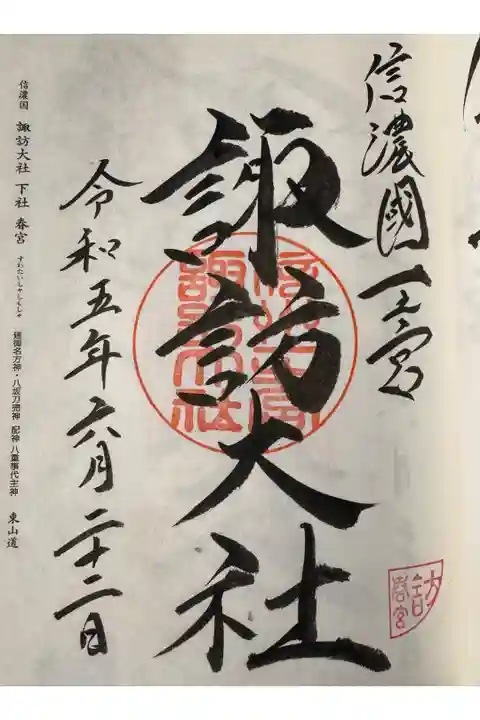 信濃國一之宮
諏訪大社
令和五年六月二十二日
信濃国 諏訪大社 下社 春宮 すわたいしゃしもしゃ 建御名方神・八坂刀売神 配神 八重事代主神 東山道
春宮